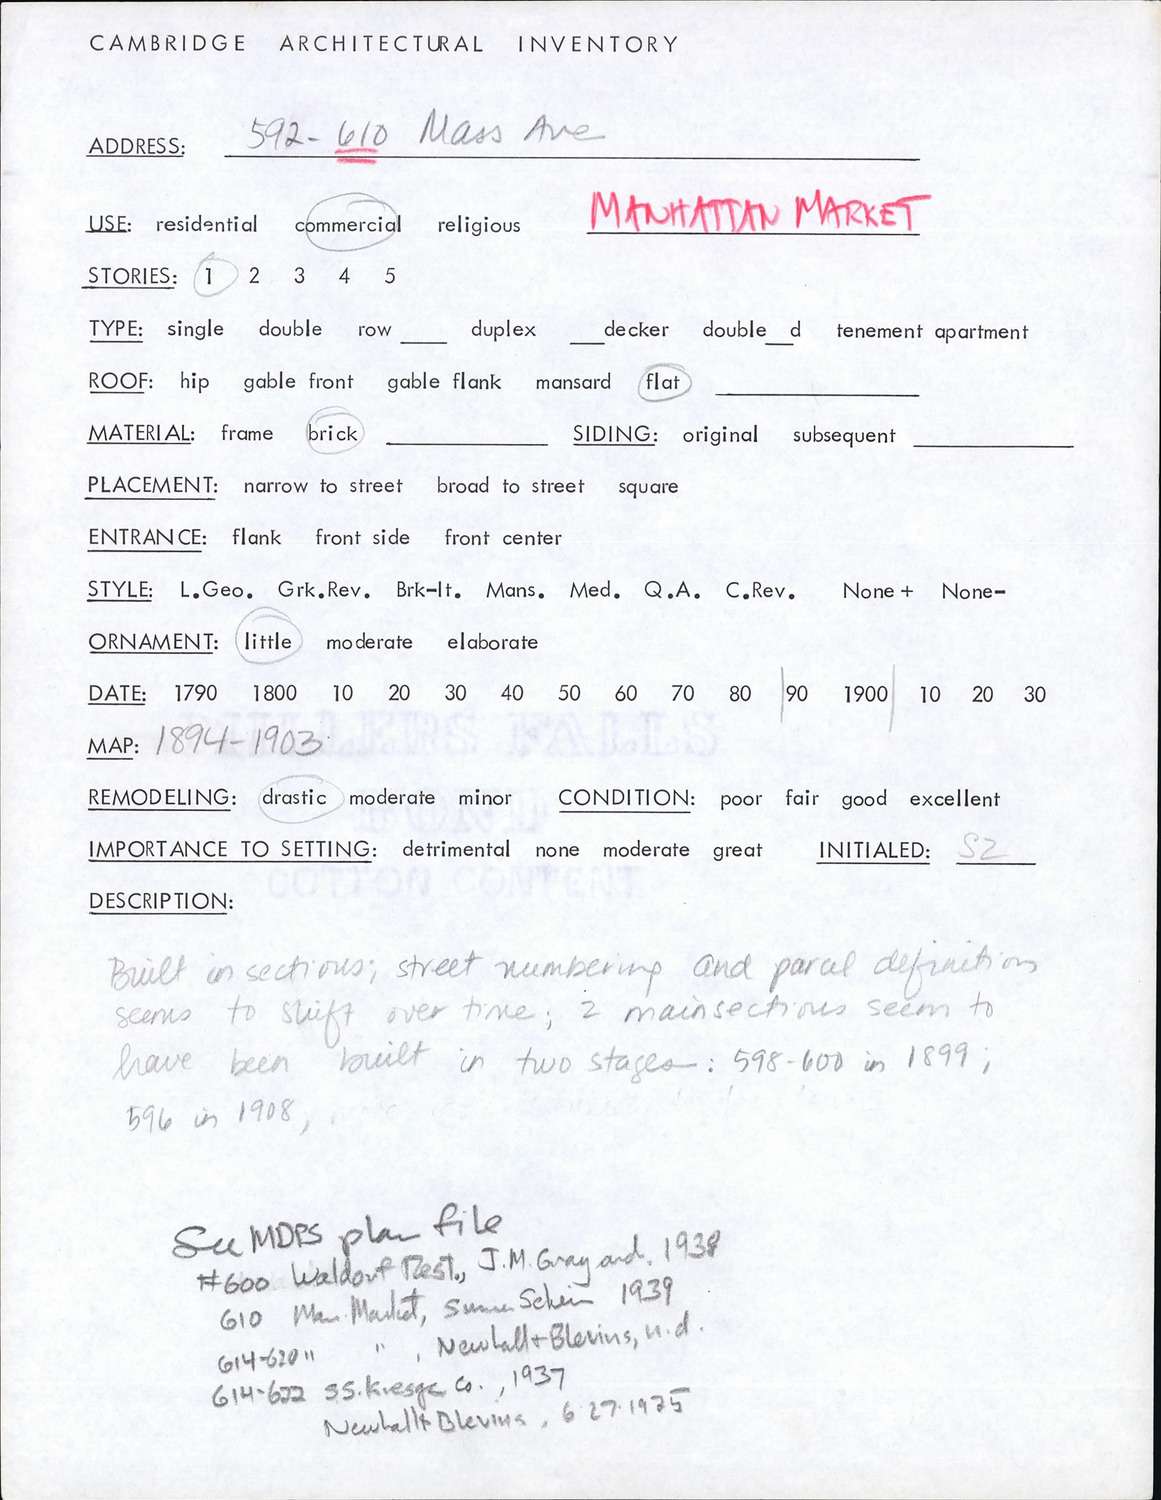 CAMBRIDGE ARCHITECTURAL INVENTORY
ADDRESS: 592-610 Mass Ave
USE: residential commercial religious MANHATTAN MARKET
STORIES: 1 2 3 4 5
TYPE: single double row ____ duplex ___decker double__d tenement apartment
ROOF: hip gable front gable flank mansard flat
MATERIAL: frame brick SIDING: original subsequent
PLACEMENT: narrow to street broad to street square
ENTRANCE: flank front side front center
STYLE: L.Geo. Grk.Rev. Brk-It. Mans. Med. Q.A. C.Rev. None+ None-
ORNAMENT: little moderate elaborate
DATE: 1790 1800 10 20 30 40 50 60 70 80 90 1900 10 20 30
MAP: 1894-1903
REMODELING: drastic moderate minor CONDITION: poor fair good excellent
IMPORTANCE TO SETTING: detrimental none moderate great INITIALED: SZ
DESCRIPTION:
Built in sections; street numbering and parcel definition
seems to shift over time; 2 main sections seem to
have been built in two stages: 598-600 in 1899;
596 in 1908,
See MDPS plan file
#600 Waldorf Rest., J.M. Gray arch. 1938
610 Man. Market, Sumner Schein 1939
614-620 " " , Newhall + Blevins, n.d.
614-622 S.S. Kresge Co., 1937
Newhall + Blevins, 6-27-1925